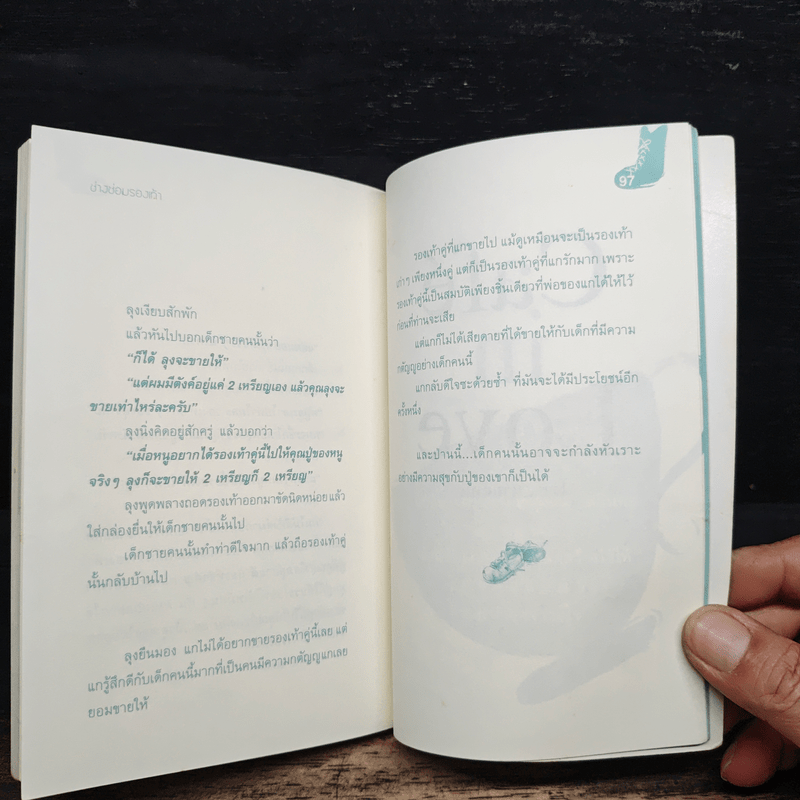 ช่างซ่อมรองเท้า
ลุงเงียบสักพัก
แล้วหันไปบอกเด็กชายคนนั้นว่า
“ก็ได้ ลุงจะขายให้”
“แต่ผมมีตังค์อยู่แค่ 2 เหรียญเอง แล้วคุณลุงจะ
ขายเท่าไหร่ละครับ”
ลุงนิ่งคิดอยู่สักครู่ แล้วบอกว่า
“เมื่อหนูอยากได้รองเท้าคู่นี้ไปให้คุณปู่ของหนู
จริงๆ ลุงก็จะขายให้ 2 เหรียญก็ 2 เหรียญ”
ลุงพูดพลางถอดรองเท้าออกมาขัดนิดหน่อยแล้ว
ใส่กล่องยื่นให้เด็กชายคนนั้นไป
เด็กชายคนนั้นทำท่าดีใจมาก แล้วถือรองเท้าคู่
นั้นกลับบ้านไป
ลุงยืนมอง แกไม่ได้อยากขายรองเท้าคู่นี้เลย แต่
แกรู้สึกดีกับเด็กคนนี้มากที่เป็นคนมีความกตัญญูแกเลย
ยอมขายให้
97
รองเท้าคู่ที่แกขายไป แม้ดูเหมือนจะเป็นรองเท้า
เก่าๆ เพียงหนึ่งคู่ แต่ก็เป็นรองเท้าคู่ที่แกรักมาก เพราะ
รองเท้าคู่นี้เป็นสมบัติเพียงชิ้นเดียวที่พ่อของแกได้ให้ไว้
ก่อนที่ท่านจะเสีย
แต่แกก็ไม่ได้เสียดายที่ได้ขายให้กับเด็กที่มีความ
กตัญญูอย่างเด็กคนนี้
แกกลับดีใจซะด้วยซ้ำ ที่มันจะได้มีประโยชน์อีก
ครั้งหนึ่ง
และป่านนี้...เด็กคนนั้นอาจจะกำลังหัวเราะ
อย่างมีความสุขกับปู่ของเขาก็เป็นได้